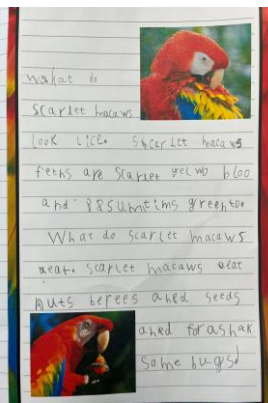 What do
scarlet macaws
look lice. Scarlet macaws
feths are scarlet yelwo bloo
and sumtims greentoo
What do scarlet macaws
eat. scarlet macaws eat
nuts berees ahed seeds
ahed for a shak
some bugs!